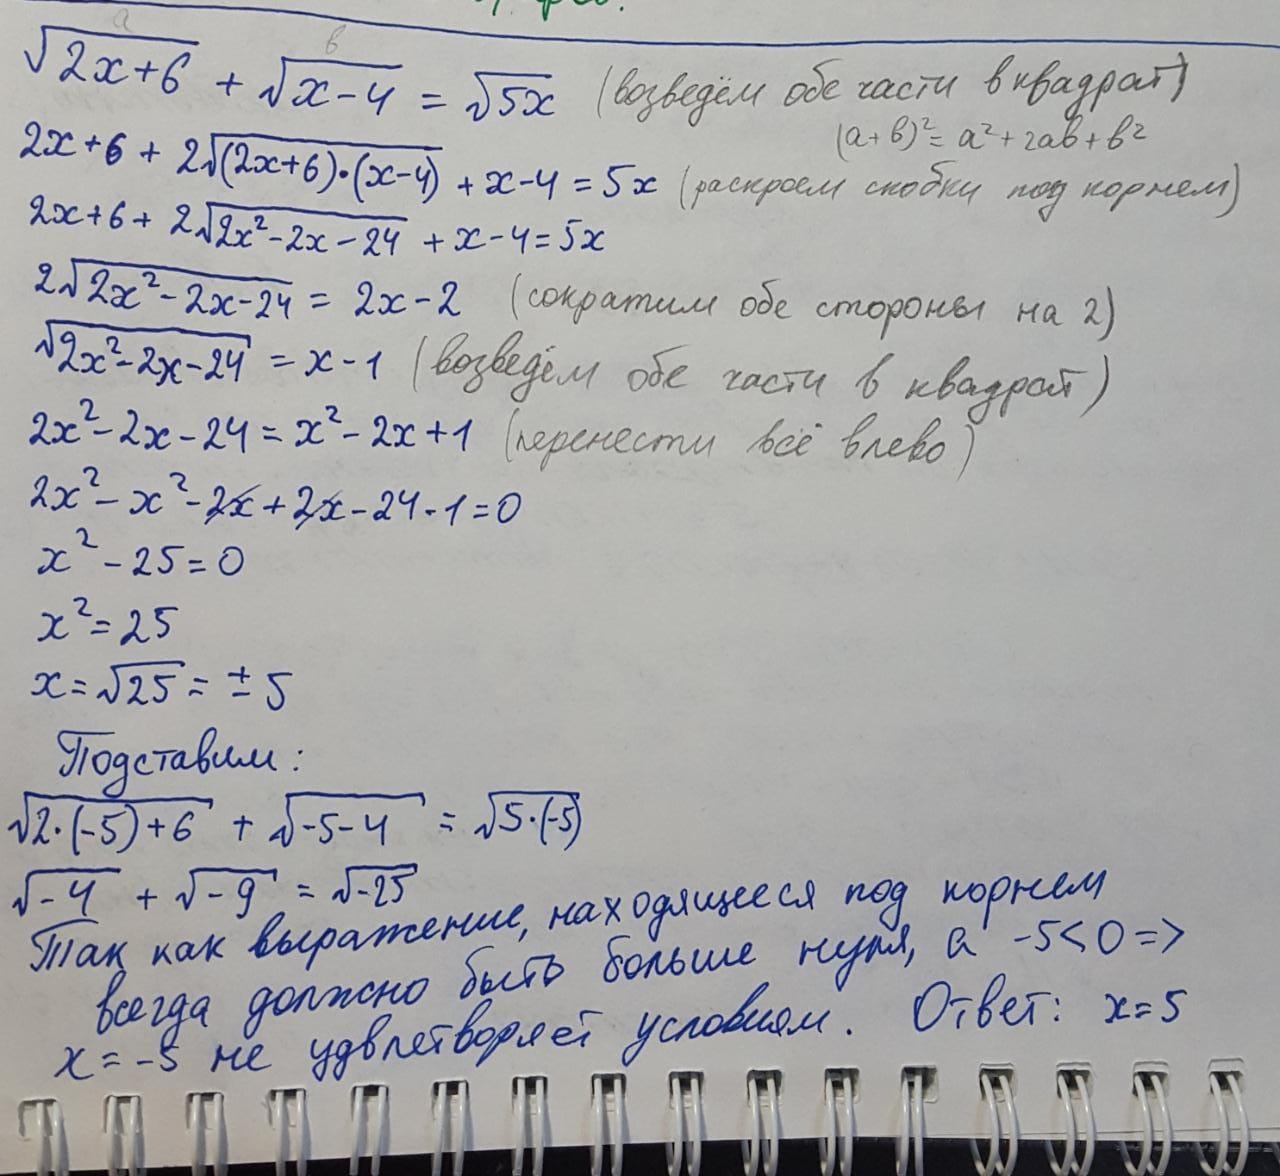 а в
√2x+6 + √x-4 = √5x (возведём обе части в квадрат)
(a+b)²= a²+2ab+b²
2x+6 + 2√(2x+6)·(x-4) + x-4 = 5x (раскроем скобки под корнем)
2x+6+ 2√2x²-2x-24 + x-4=5x
2√2x²-2x-24 = 2x-2 (сократим обе стороны на 2)
√2x²-2x-24 = x-1 (возведём обе части в квадрат)
2x²-2x-24=x²-2x+1 (перенести всё влево)
2x²-x²-2x+2x-24-1=0
x²-25=0
x²=25
x=√25=±5
Подставим:
√2·(-5)+6 + √-5-4 = √5·(-5)
√-4 + √-9 = √-25
Так как выражение, находящееся под корнем
всегда должно быть больше нуля, а -5<0 =>
x=-5 не удвлетворяет условиям. Ответ: x=5